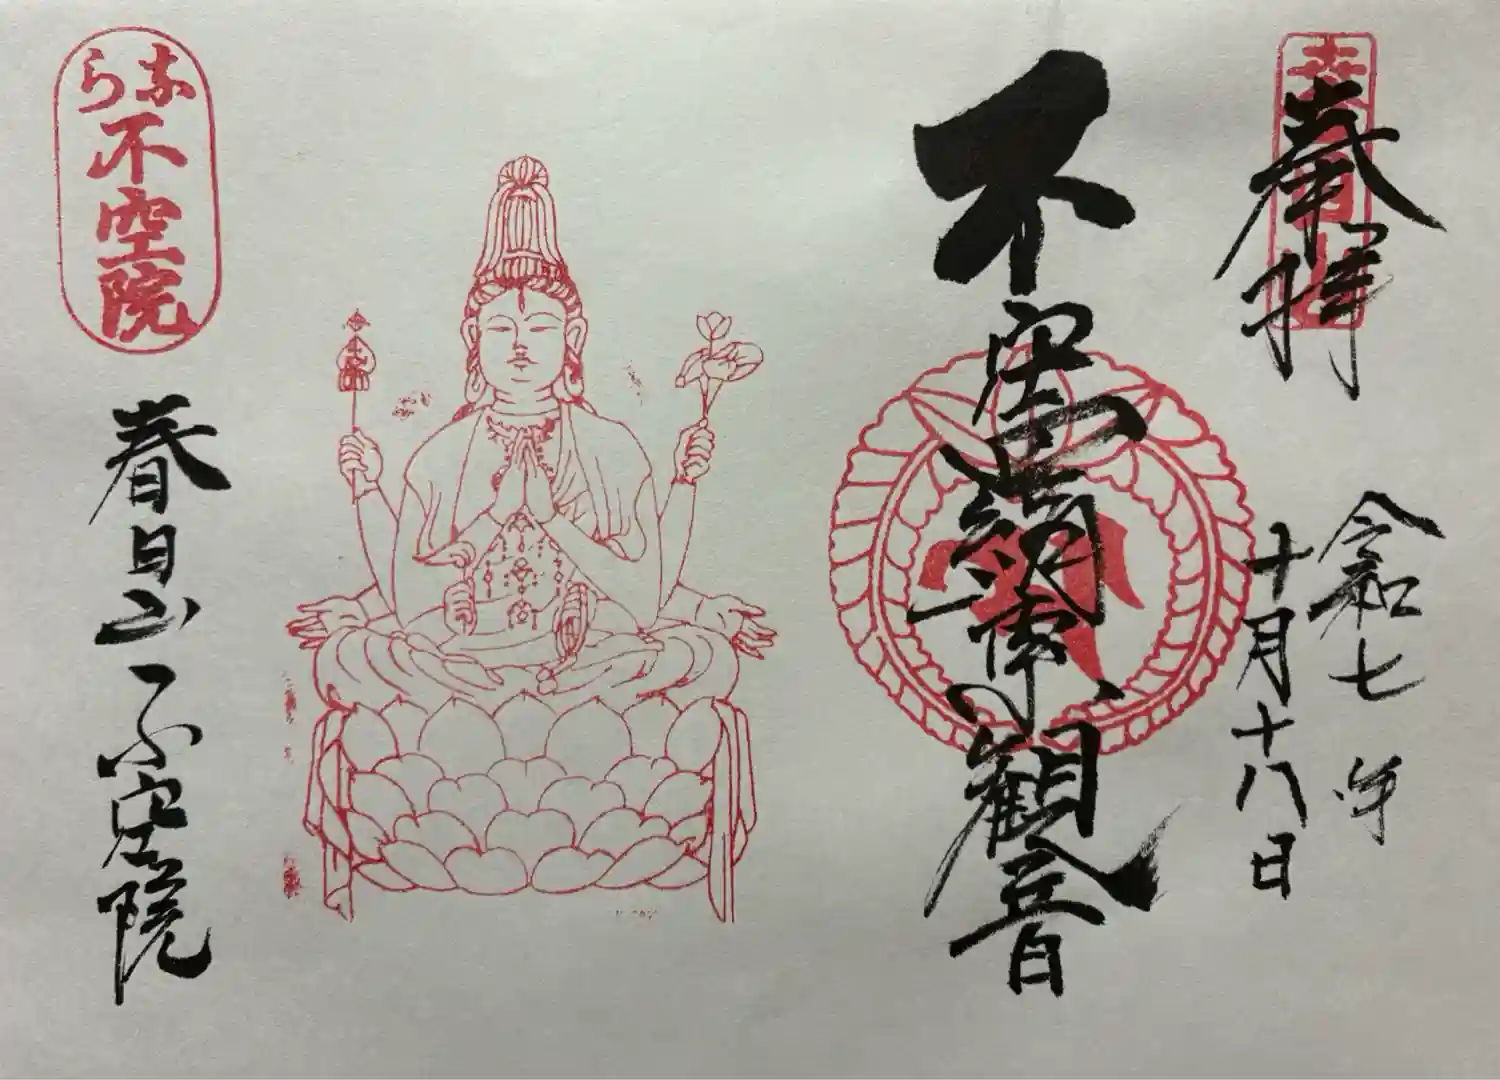 奉拝
春日山
令和七年
十月十八日
不空羂索観音
なら
不空院
春日山不空院